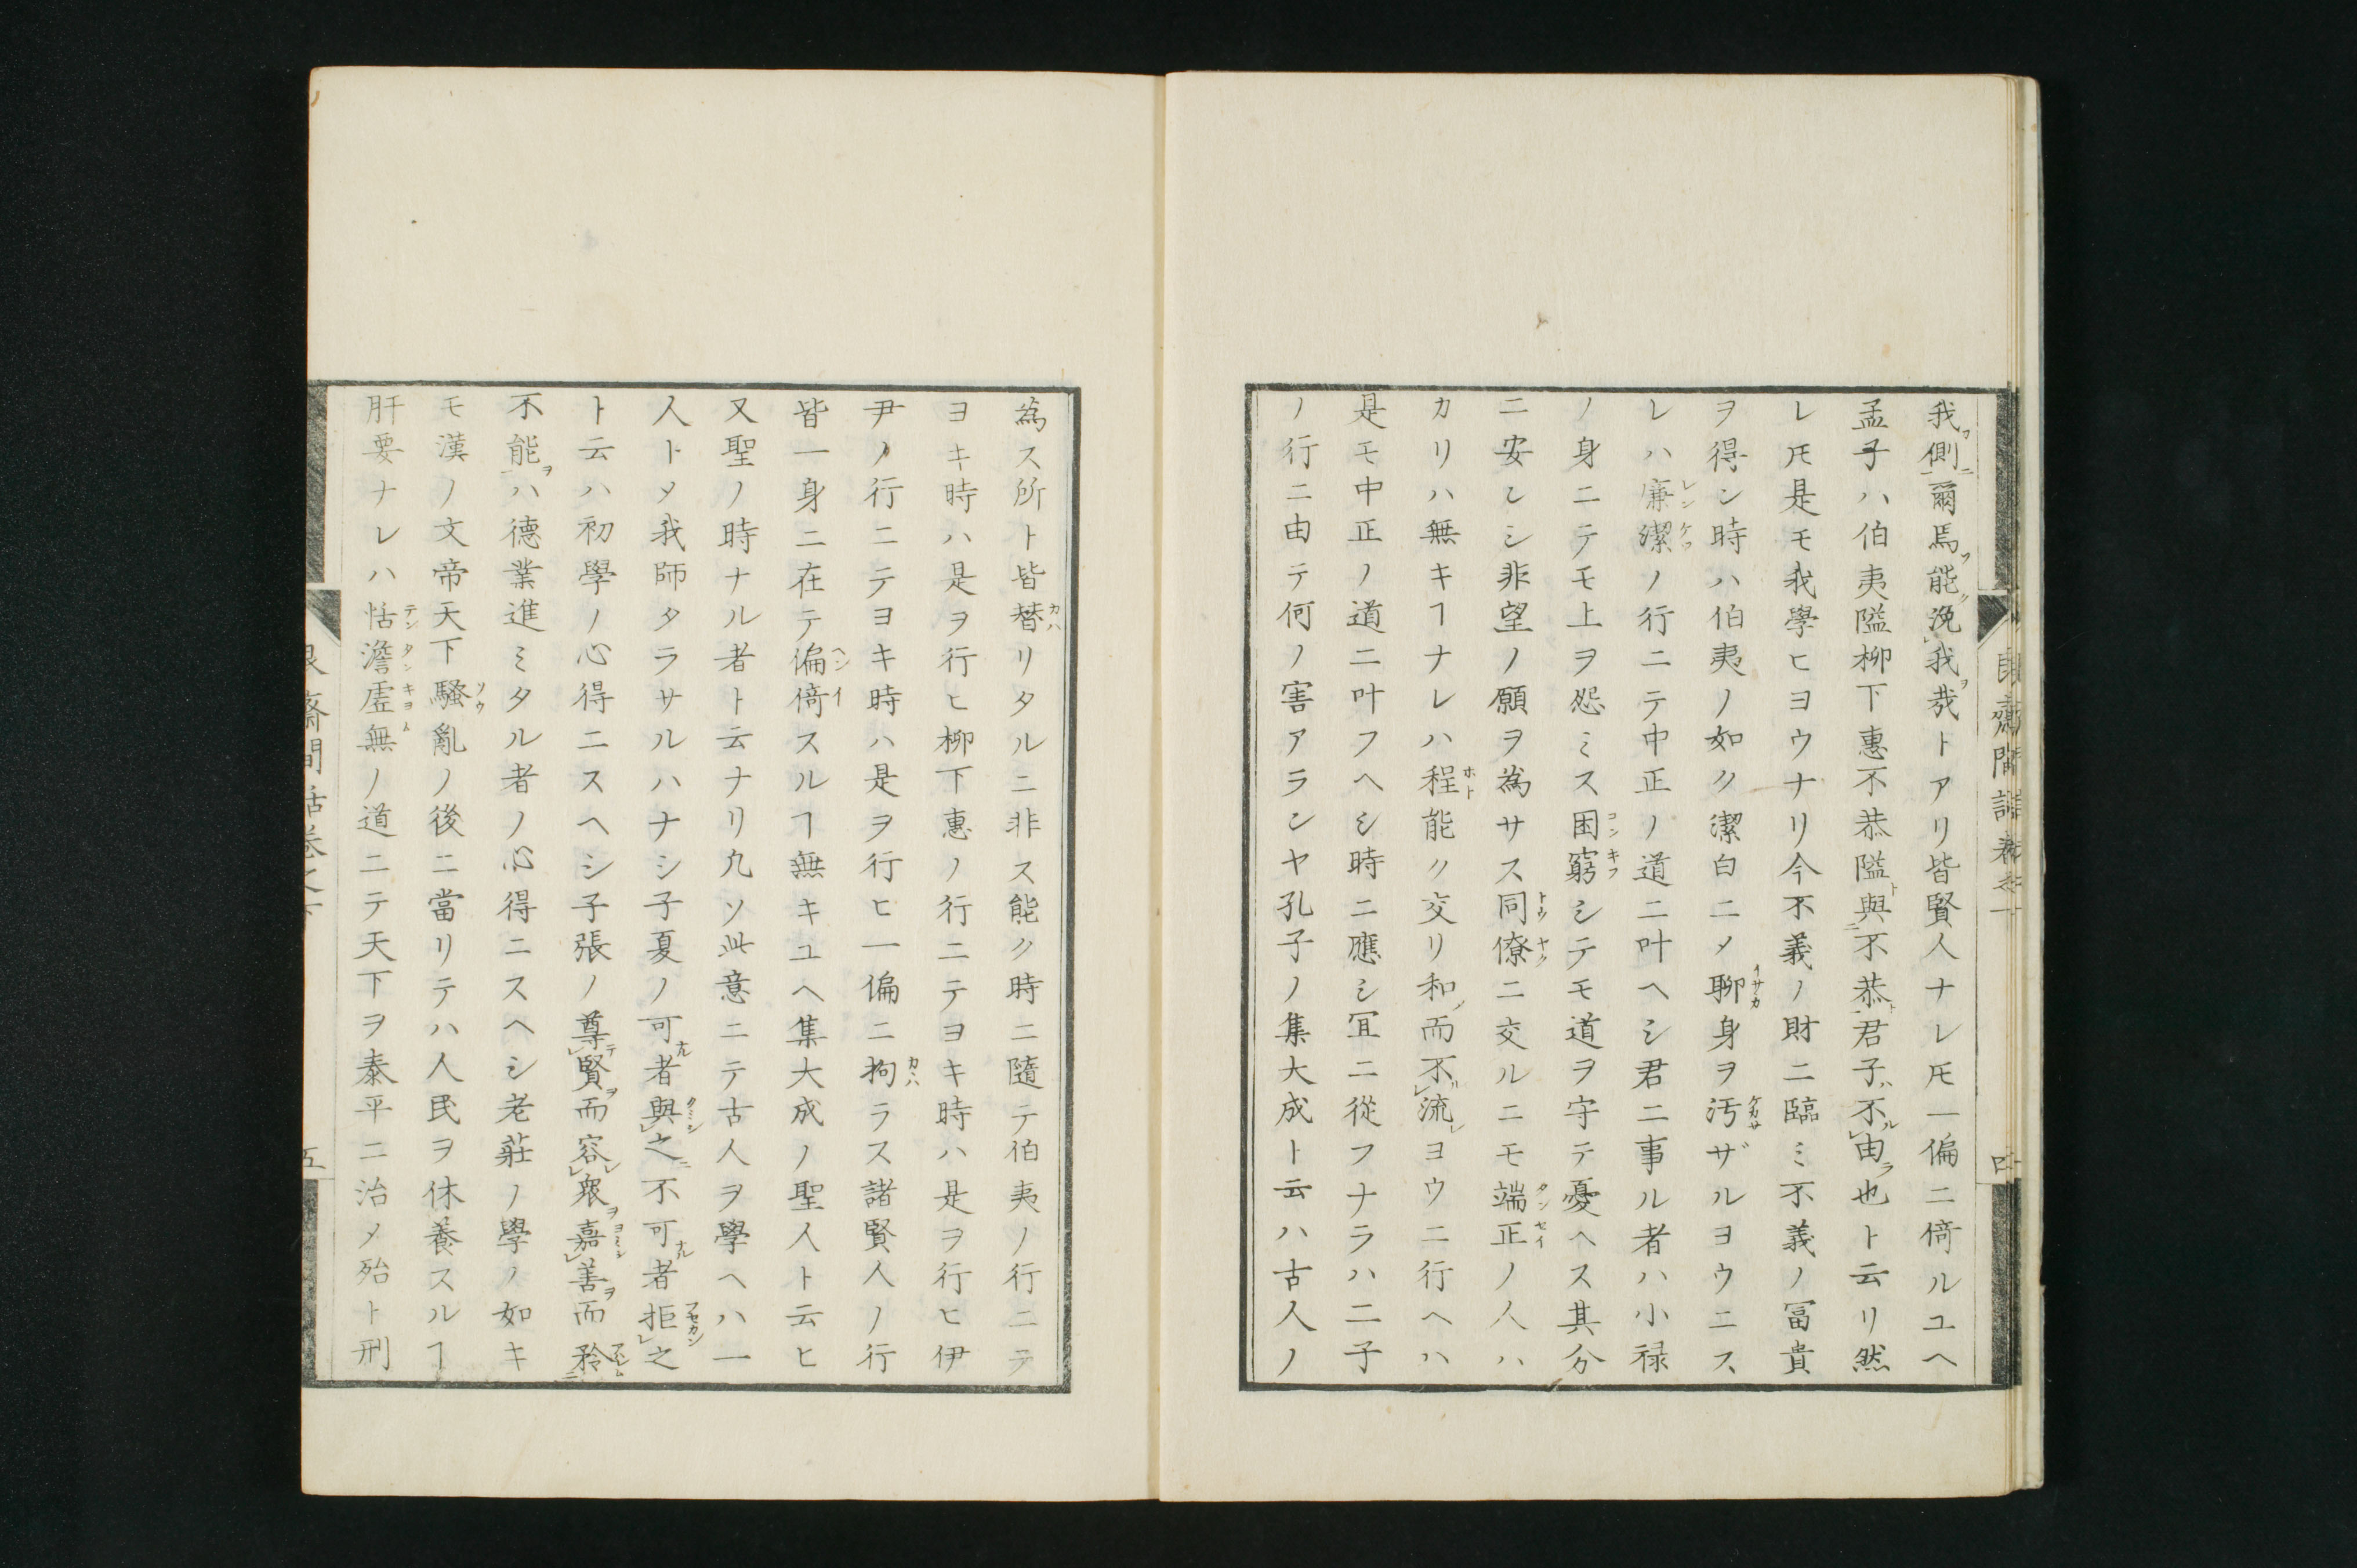 我側爾焉能浼我哉トアリ皆賢人ナレ𪜈一偏ニ倚ルユヘ
孟子ハ伯夷隘柳下惠不恭隘與不恭君子不由也ト云リ然
レ𪜈是モ我學ヒヨウナリ今不義ノ財ニ臨ミ不義ノ冨貴
ヲ得ン時ハ伯夷ノ如ク潔白ニメ聊身ヲ汚ザルヨウニス
レハ廉潔ノ行ニテ中正ノ道ニ叶ヘシ君ニ事ル者ハ小禄
ノ身ニテモ上ヲ怨ミス困窮シテモ道ヲ守テ憂ヘス其分
ニ安シシ非望ノ願ヲ為サス同僚ニ交ルニモ端正ノ人ハ
カリハ無キヿナレハ程能ク交リ和而不流ヨウニ行ヘハ
是モ中正ノ道ニ叶フヘシ時ニ應シ冝ニ從フナラハ二子
ノ行ニ由テ何ノ害アランヤ孔子ノ集大成ト云ハ古人ノ
四
為ス所ト皆替リタルニ非ス能ク時ニ隨テ伯夷ノ行ニテ
ヨキ時ハ是ヲ行ヒ柳下惠ノ行ニテヨキ時ハ是ヲ行ヒ伊
尹ノ行ニテヨキ時ハ是ヲ行ヒ一偏ニ拘ラス諸賢人ノ行
皆一身ニ在テ偏倚スルヿ無キユヘ集大成ノ聖人ト云ヒ
又聖ノ時ナル者ト云ナリ凢ソ此意ニテ古人ヲ學ヘハ一
人トメ我師タラサルハナシ子夏ノ可者與之不可者拒之
ト云ハ初學ノ心得ニスヘシ子張ノ尊賢而容衆嘉善而矜
不能ハ德業進ミタル者ノ心得ニスヘシ老莊ノ學ノ如キ
モ漢ノ文帝天下騷亂ノ後ニ當リテハ人民ヲ休養スルヿ
肝要ナレハ恬澹虛無ノ道ニテ天下ヲ泰平ニ治メ殆ト刑
齋間話卷之下
五